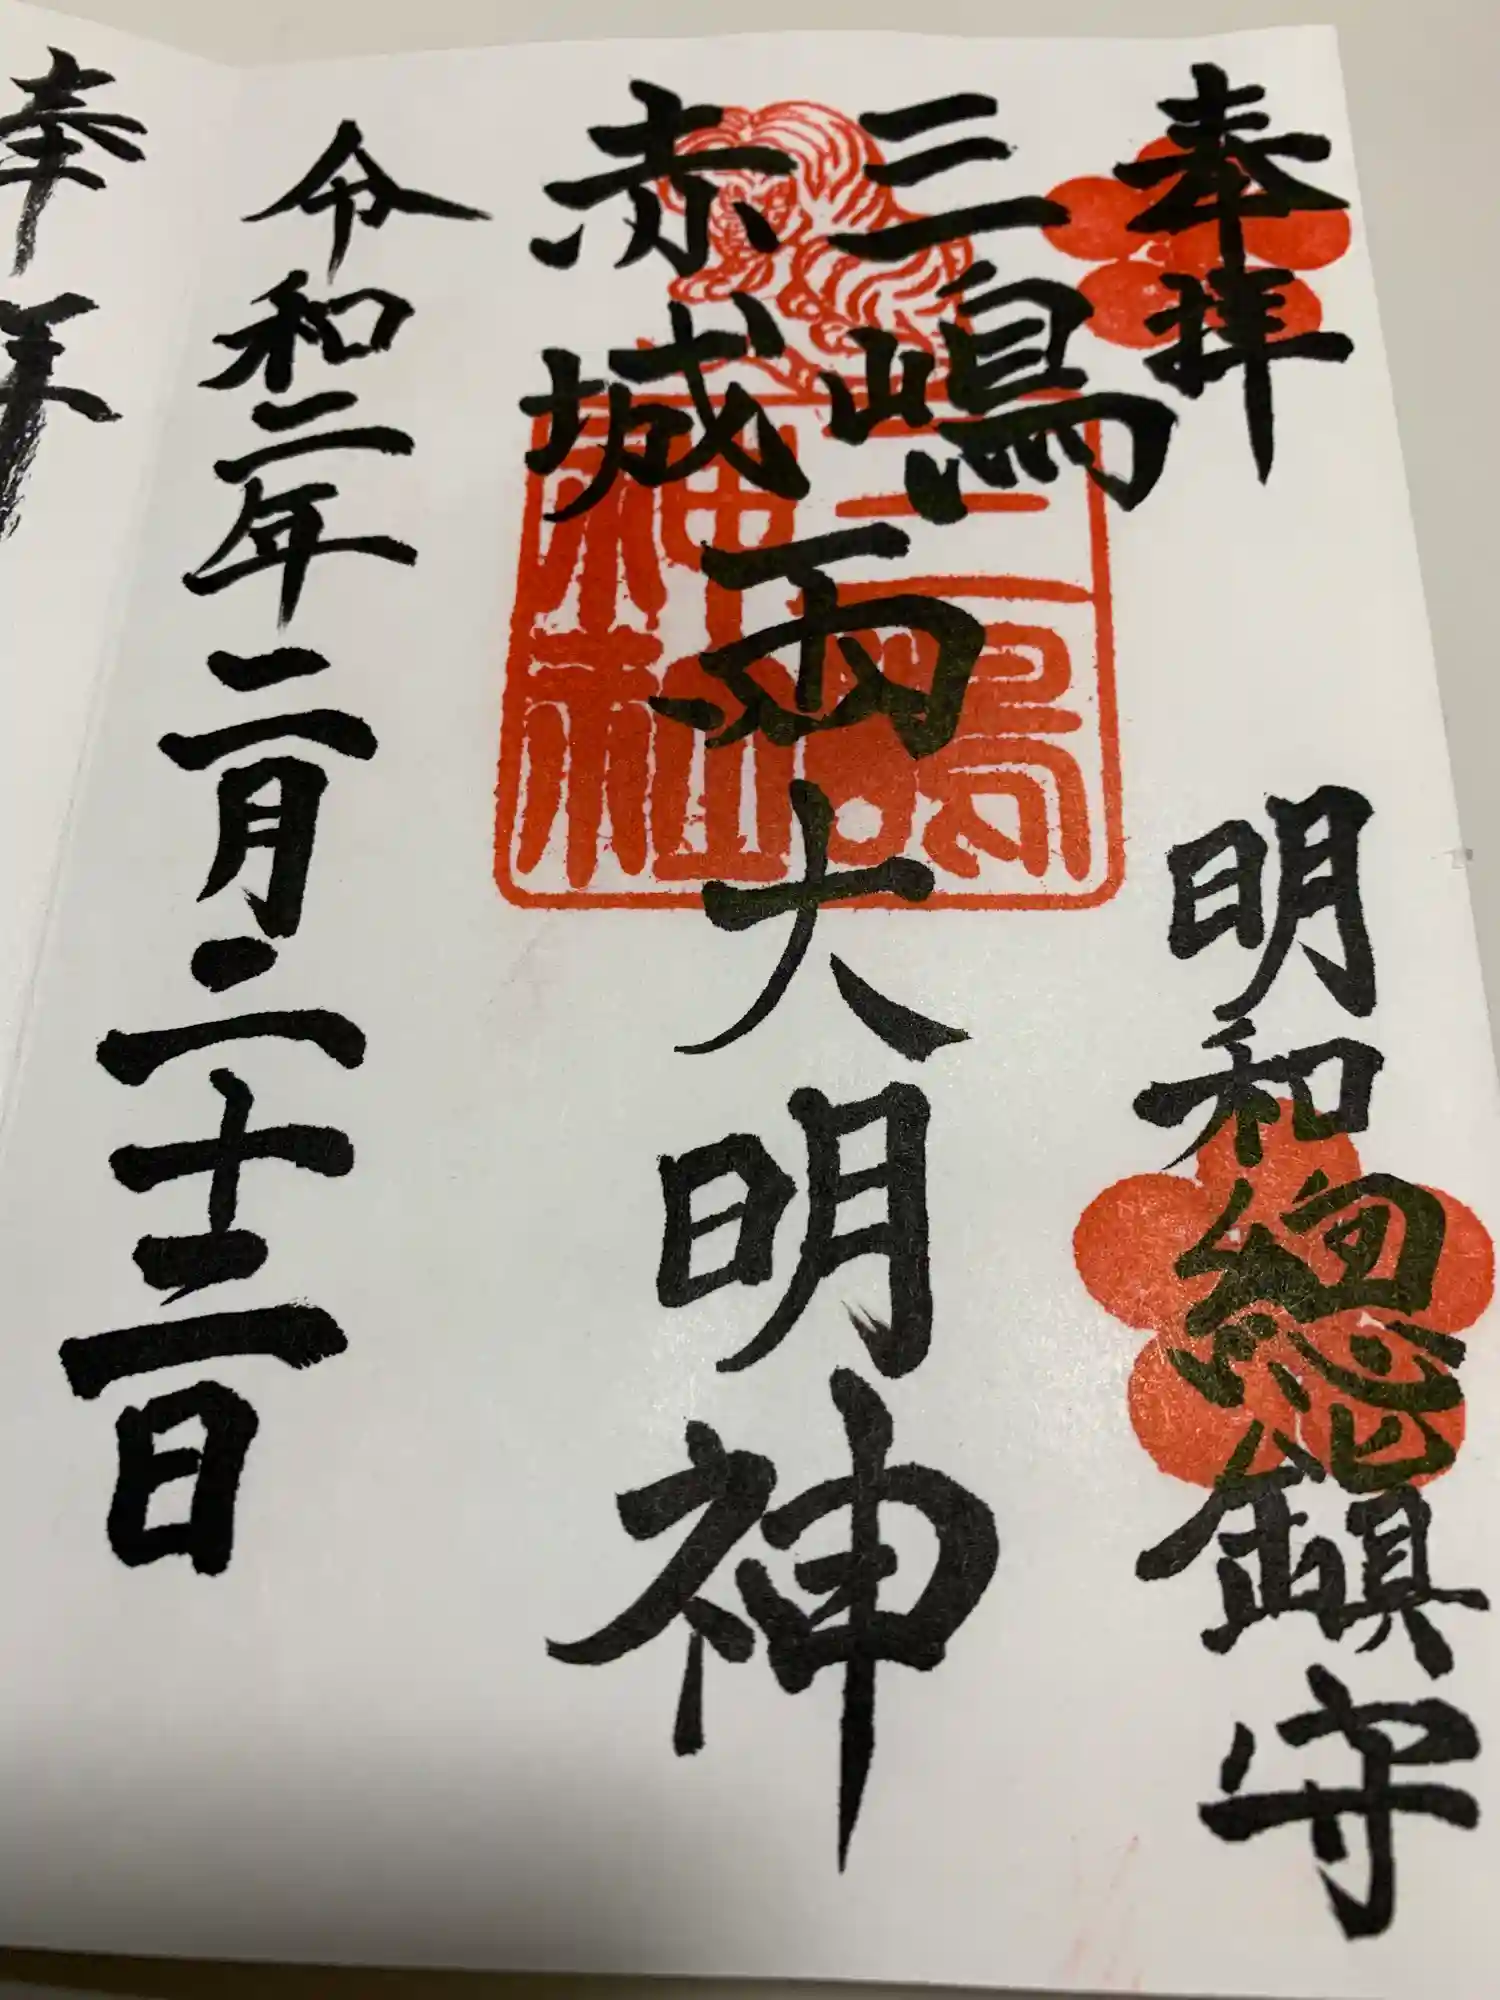 奉拝
明和總鎮守
三嶋
赤城
両大明神
三嶋
神社
令和二年二月二十二日
奉